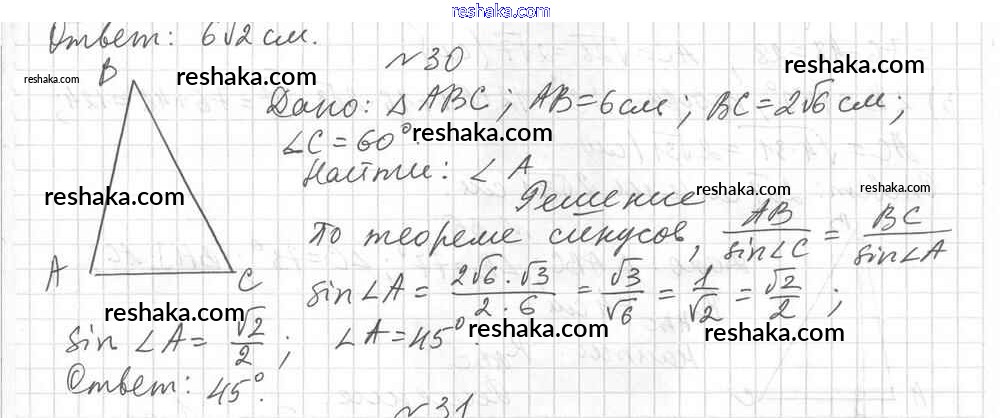 reshaka.com
Ответ: 6√2 см.
№30
reshaka.com
reshaka.com
reshaka.com
B
Дано: △ABC; AB=6см; BC=2√6 см;
∠C=60°.
reshaka.com
Найти: ∠A
reshaka.com
Решение
reshaka.com
reshaka.com
По теореме синусов, AB/sin∠C = BC/sin∠A
A
C
sin∠A = 2√6·√3/2·6 = √3/√6 = 1/√2 = √2/2;
reshaka.com
sin∠A = √2/2; ∠A=45°.
reshaka.com
reshaka.com
Ответ: 45°.
№31